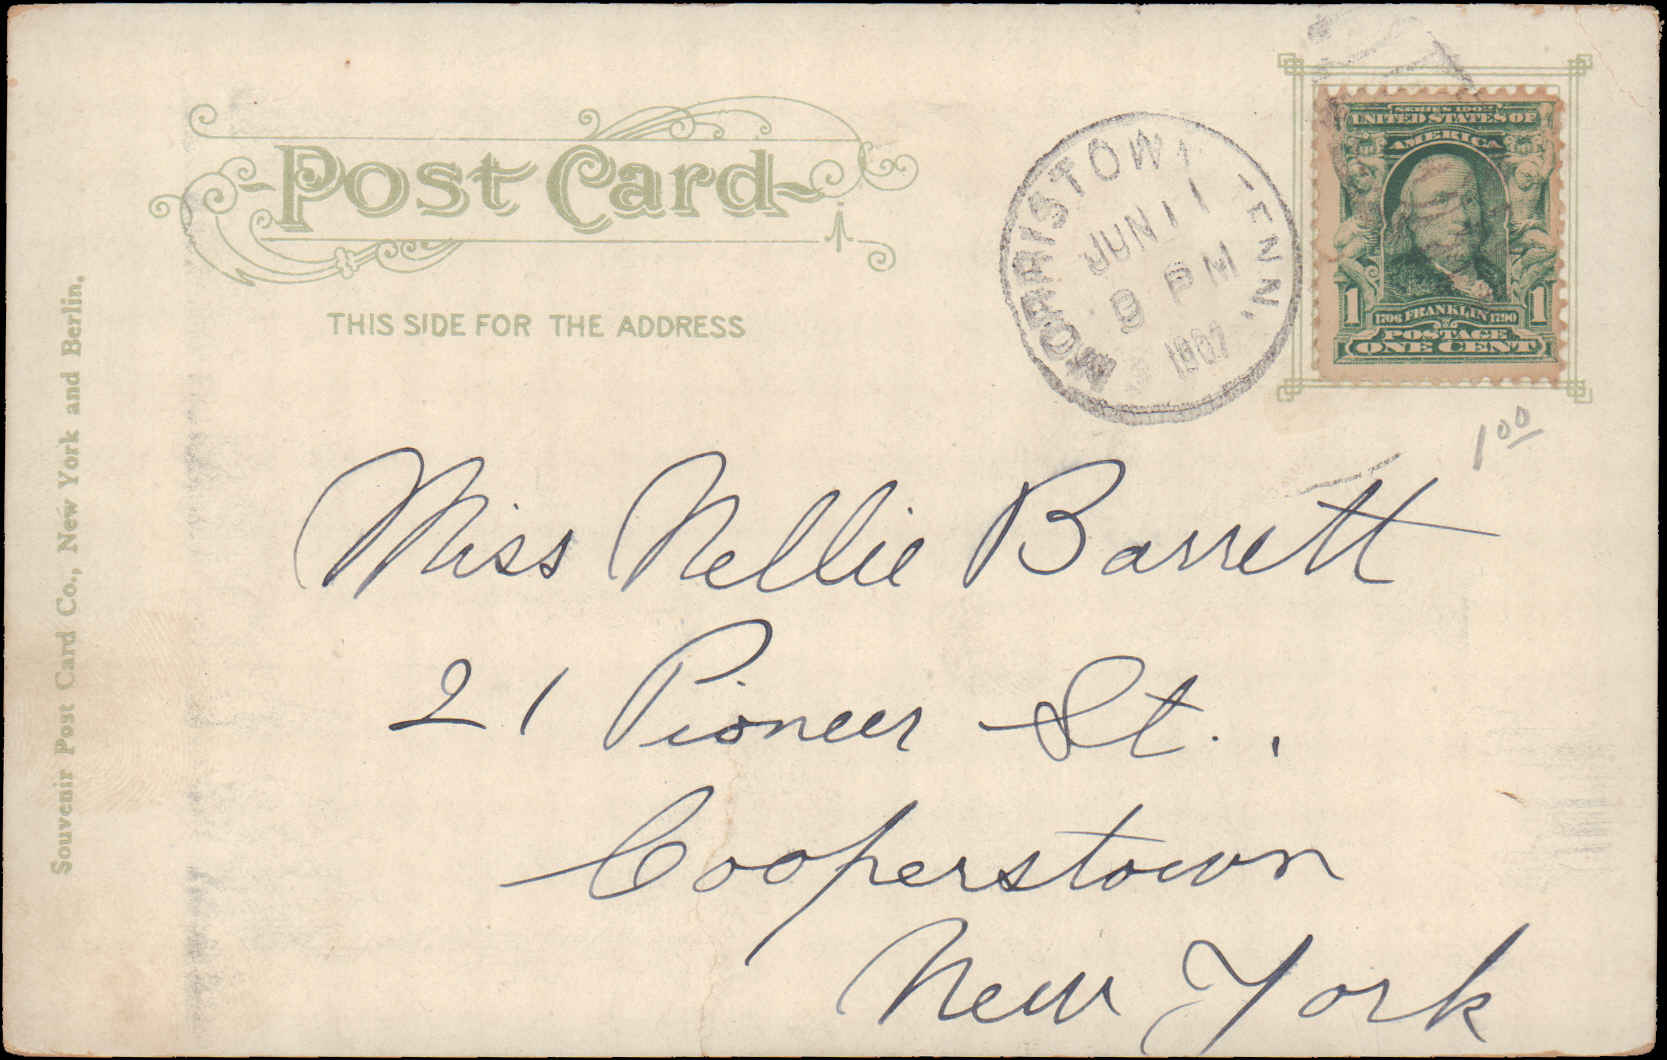 Post Card
THIS SIDE FOR THE ADDRESS
Souvenir Post Card Co., New York and Berlin.
MORRISTOWN TENN.
JUN 11
9 PM
1907
SERIES 1902
UNITED STATES OF
AMERICA
1 1
1706 FRANKLIN 1790
POSTAGE
ONE CENT
1.00
Miss Nellie Barrett
21 Pioneer St.,
Cooperstown
New York